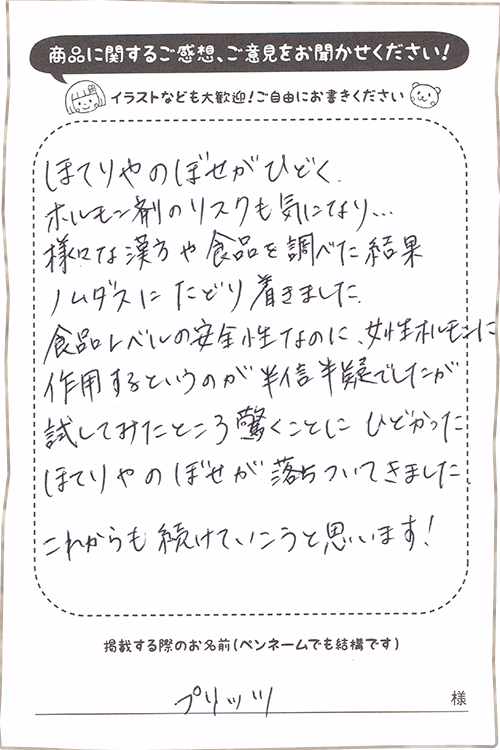 商品に関するご感想、ご意見をお聞かせください!
イラストなども大歓迎!ご自由にお書きください
ほてりやのぼせがひどく、
ホルモン剤のリスクも気になり…
様々な漢方や食品を調べた結果
ノムダスにたどり着きました。
食品レベルの安全性なのに、女性ホルモンに
作用するというのが半信半疑でしたが
試してみたところ驚くことにひどかった
ほてりやのぼせが落ちついてきました。
これからも続けていこうと思います!
掲載する際のお名前(ペンネームでも結構です)
プリッツ 様